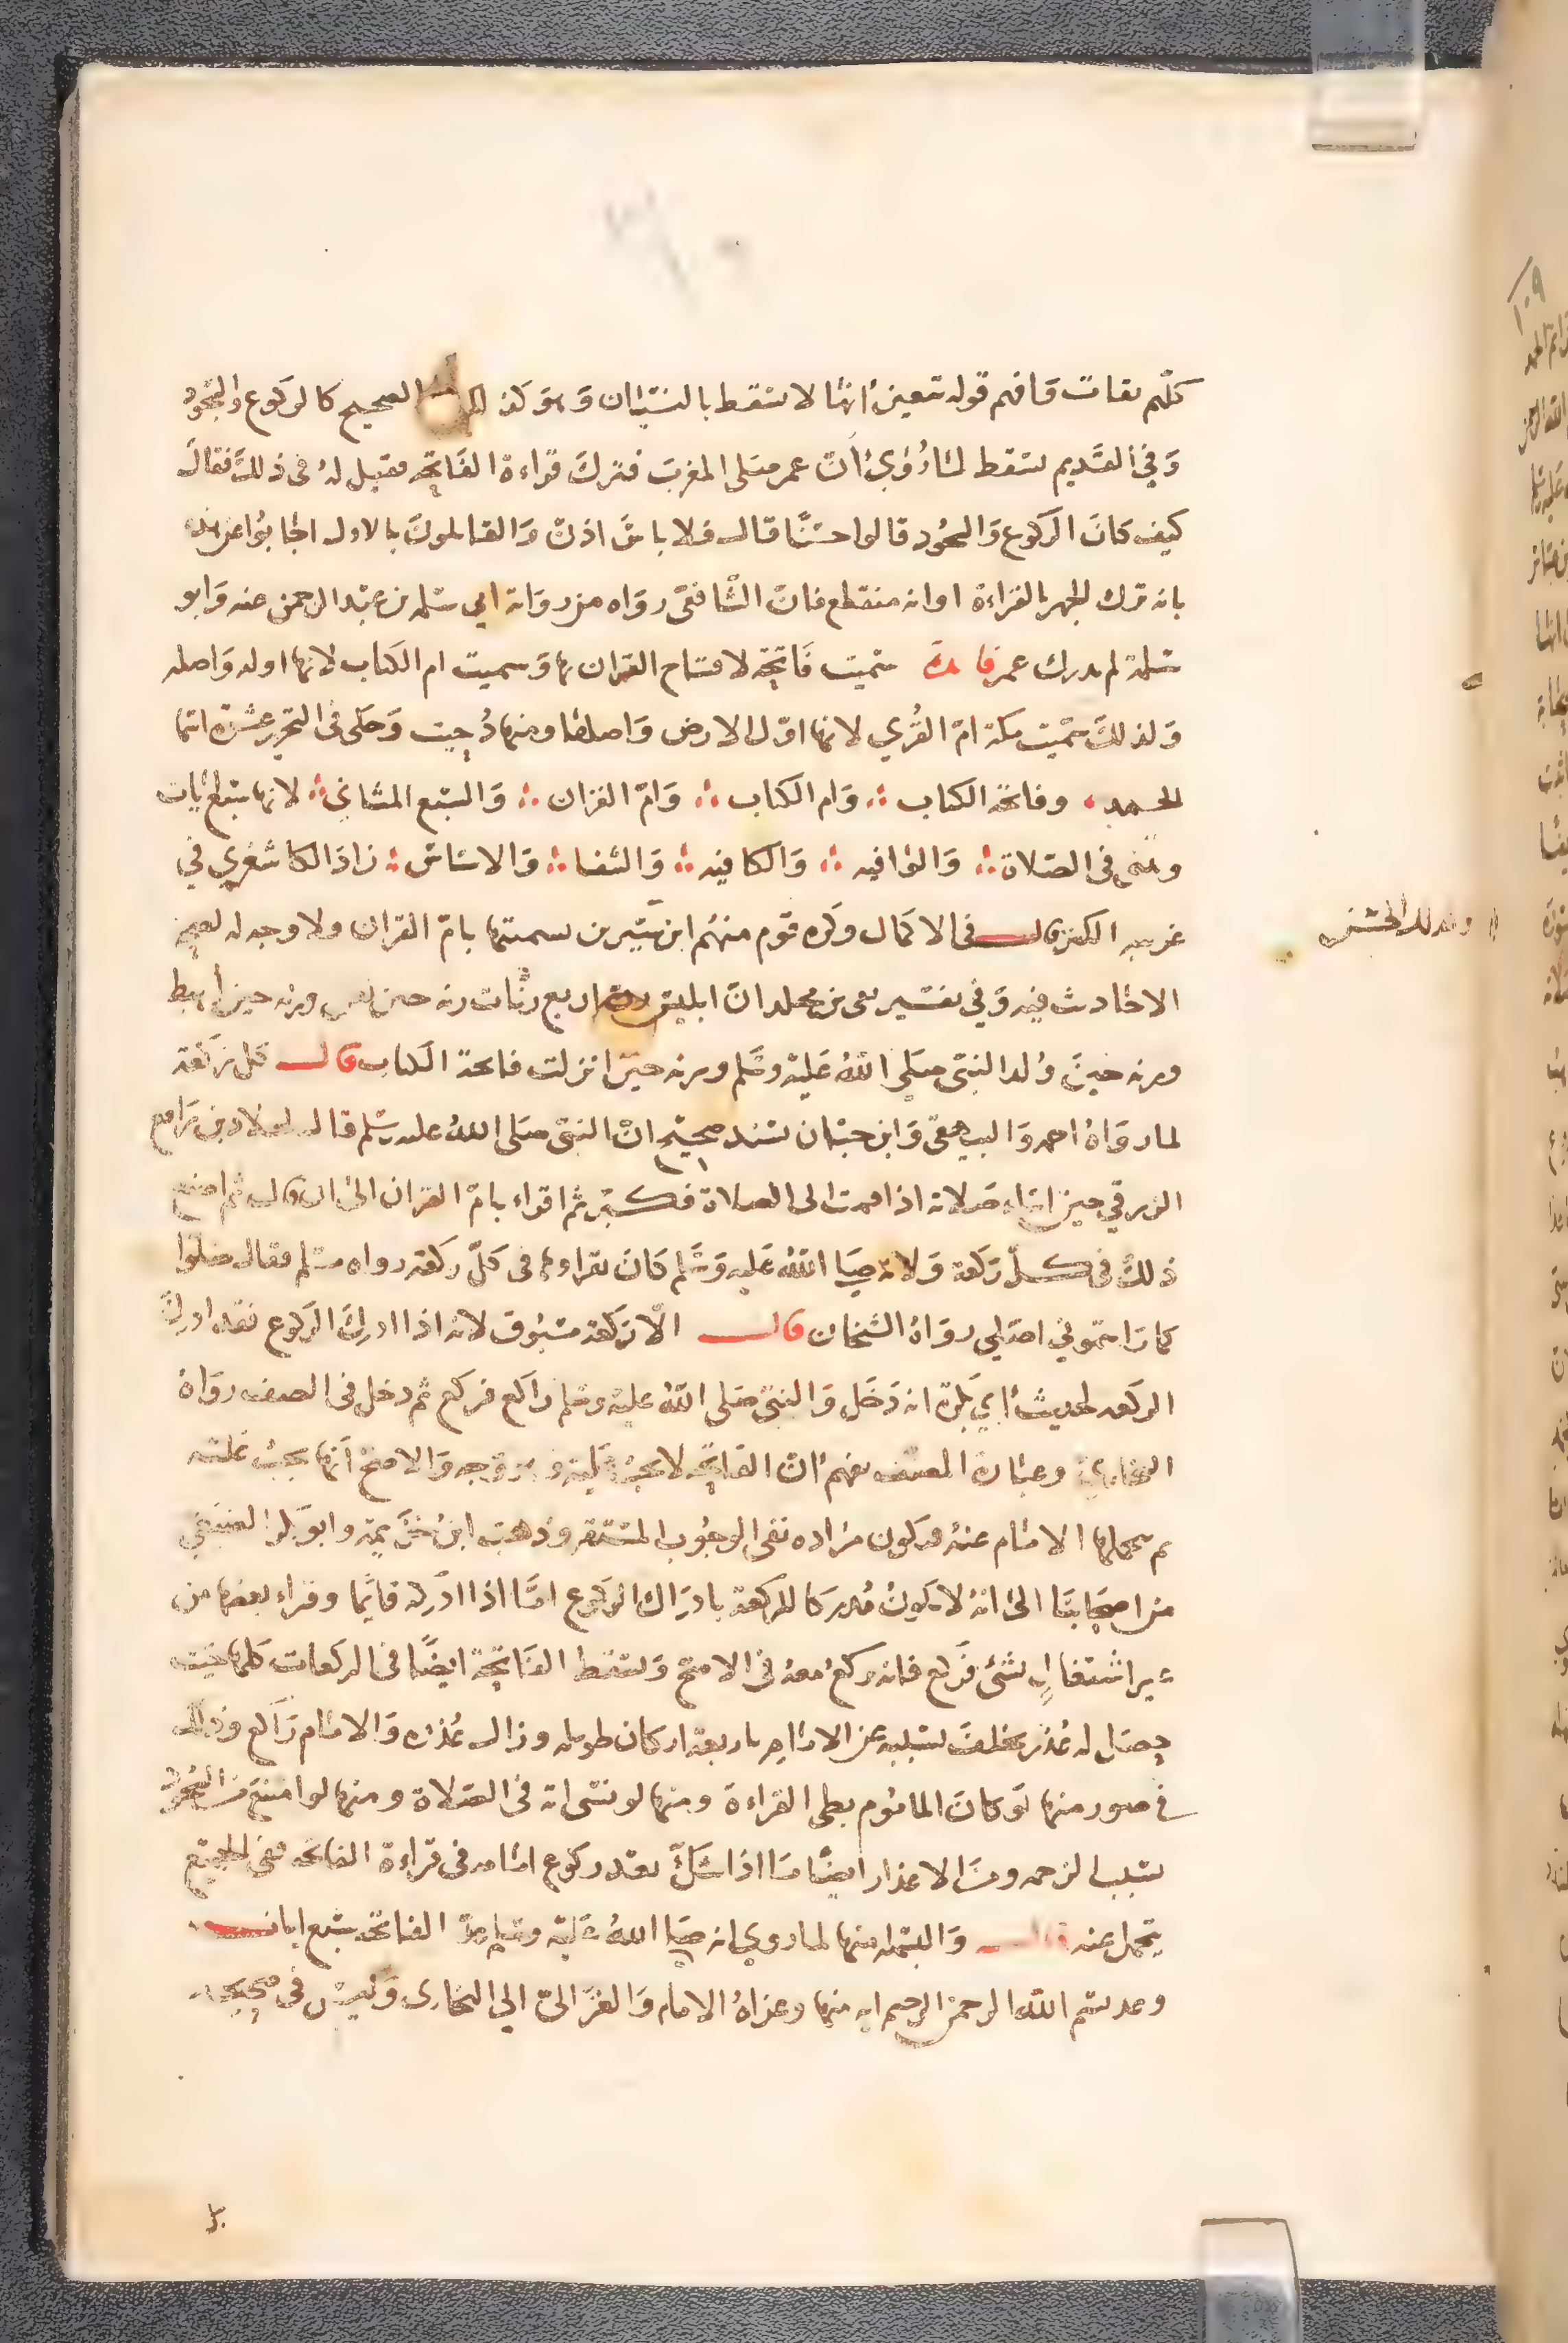 كلهم ثقات وافهم قوله تتعين انها لا تسقط بالنسيان وهو كذلك على الصحيح كالركوع والسجود
وفي القديم تسقط لما روي أن عمر صلى المغرب فترك قراءة الفاتحة فقيل له في ذلك فقال
كيف كان الركوع والسجود قالوا حسنا قال فلا باس اذن والقائلون بالاول اجابوا عن هذا
بانه ترك الجهر بالقراءة او انه منقطع فان الشافعي رواه من رواية ابي سلمة بن عبد الرحمن عنه وابو
سلمة لم يدرك عمر فائدة سميت فاتحة لافتتاح القران بها وسميت ام الكتاب لانها اوله واصله
ولذلك سميت مكة ام القرى لانها اول الارض واصلها ومنها دحيت وحكى في التحرير عشرة اسما
الحمد وفاتحة الكتاب وام الكتاب وام القران والسبع المثاني لانها سبع ايات
وتثنى في الصلاة والوافيه والكافيه والشفا والاساس زاد الكاشغري في
غريبه الكنز قال في الاكمال وكره قوم منهم ابن سيرين تسميتها بام القران ولا وجه له لصحة
الاحاديث فيه وفي تفسير بقي بن مخلد ان ابليس رن اربع رنات رنه حين لعن ورنه حين أهبط
ورنه حين ولد النبي صلى الله عليه وسلم ورنه حين انزلت فاتحة الكتاب قال كل ركعة
لما رواه احمد والبيهقي وابن حبان بسند صحيح ان النبي صلى الله عليه وسلم قال لخلاد بن رافع
الزرقي حين اساء صلاته اذا قمت الى الصلاة فكبر ثم اقراء بام القران الى ان قال ثم اصنع
ذلك في كل ركعة ولانه صلى الله عليه وسلم كان يقراوها في كل ركعة رواه مسلم فقال صلوا
كما رايتموني اصلي رواه الشيخان قال الا ركعة مسبوق لانه اذا ادرك الركوع فقد ادرك
الركعه لحديث ابي بكرة انه دخل والنبي صلى الله عليه وسلم راكع فركع ثم دخل في الصف رواه
البخاري وعبارة المصنف تفهم ان الفاتحة لا تجب عليه وهو وجه والاصح أنها تجب عليه
ثم يحملها الامام عنه فيكون مراده نفي الوجوب المستقر وذهب ابن خزيمة وابو بكر الضبعي
من اصحابنا الى انه لا يكون مدركا للركعة بادراك الركوع اما اذا ادركه قائما وقراء بعضها من
غير اشتغال بشئ فركع فانه يركع معه في الاصح وتسقط الفاتحة ايضا في الركعات كلها حيث
حصل له عذر تخلف بسببه عن الامام باربعة اركان طويله وزال عذره والامام راكع وذلك
في صور منها لو كان الماموم بطئ القراءة ومنها لو نسي انه في الصلاة ومنها لو امتنع من السجود
بسبب الزحمه ومن الاعذار ايضا ما اذا شك بعد ركوع امامه في قراءة الفاتحه ففي الجميع
يتحمل عنه قال والبسمله منها لما روي انه صلى الله عليه وسلم عد الفاتحه سبع ايات
وعد بسم الله الرحمن الرحيم ايه منها وعزاه الامام والغزالي الى البخاري وليس في صحيحه